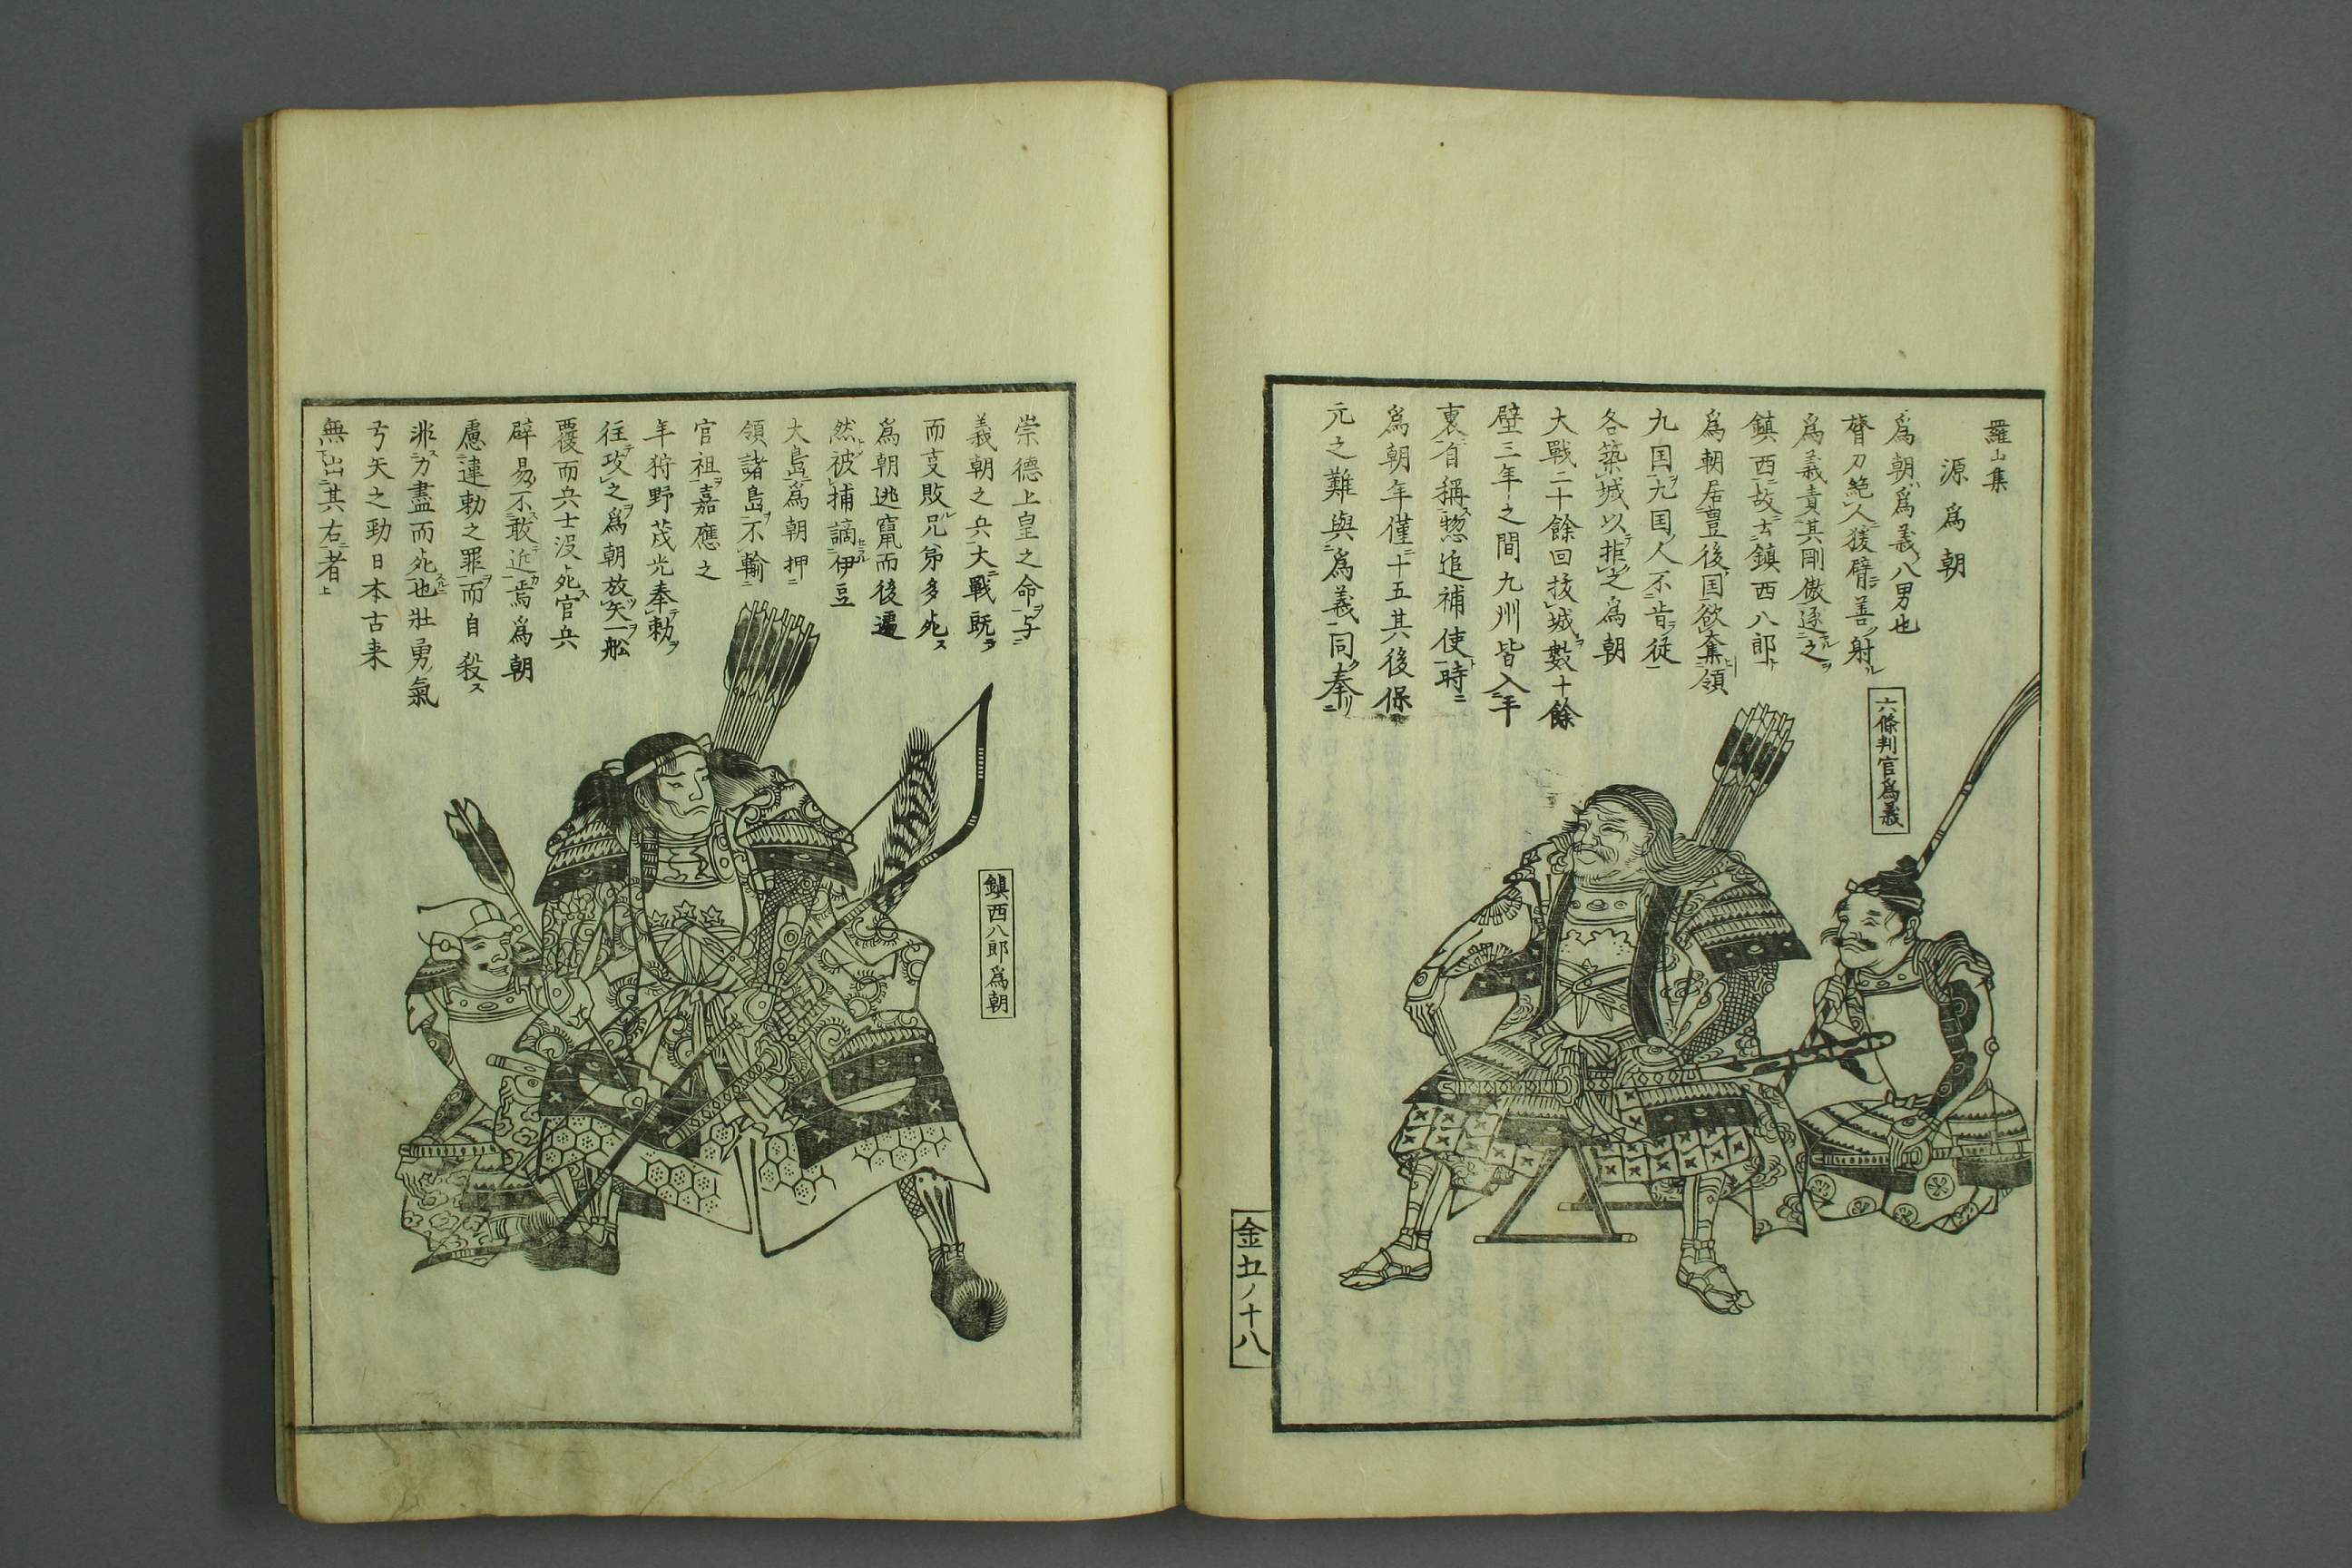 羅山集
源爲朝
爲朝爲義八男也
膂力絶人猨臂善射
爲義責其剛傲逐之
鎮西故去鎮西八郎
爲朝居豊後国欲奪領
九国九国人不肯従
各築城以拒之爲朝
大戰二十餘回抜城數十餘
壁三年之間九州皆入平
裏自稱惣追補使時
爲朝年僅十五其後保
元之難與爲義同奉
六條判官爲義
金五ノ十八
崇德上皇之命与
義朝之兵大戰既
而支敗兄弟多死
爲朝逃竄而後遷
然被捕謫伊豆
大島爲朝押
領諸島不輸
官祖嘉應之
年狩野茂光奉勅
往攻之爲朝放矢一舩
覆而兵士没死官兵
辟易不敢近焉爲朝
慮違勅之罪而自殺
非力盡而死也壯勇氣
弓矢之勁日本古来
無出其右者
鎮西八郎爲朝